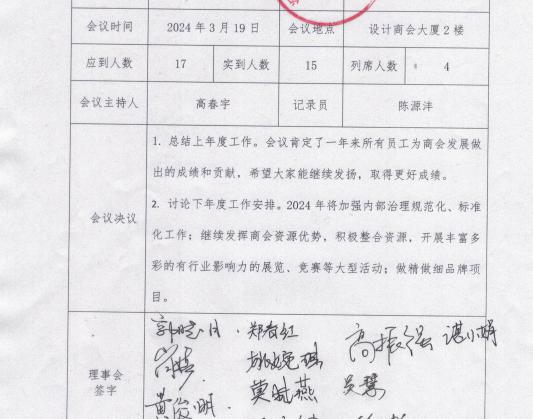 会议时间 2024年3月19日 会议地点 设计商会大厦2楼
应到人数 17 实到人数 15 列席人数 4
会议主持人 高春宇 记录员 陈源沣
会议决议
1. 总结上年度工作。会议肯定了一年来所有员工为商会发展做
出的成绩和贡献，希望大家能继续发扬，取得更好成绩。
2. 讨论下年度工作安排。2024年将加强内部治理规范化、标准
化工作；继续发挥商会资源优势，积极整合资源，开展丰富多
彩的有行业影响力的展览、竞赛等大型活动；做精做细品牌项
目。
理事会
签字
郑春红 高振强
莫毓燕 吴慧
黄俊明